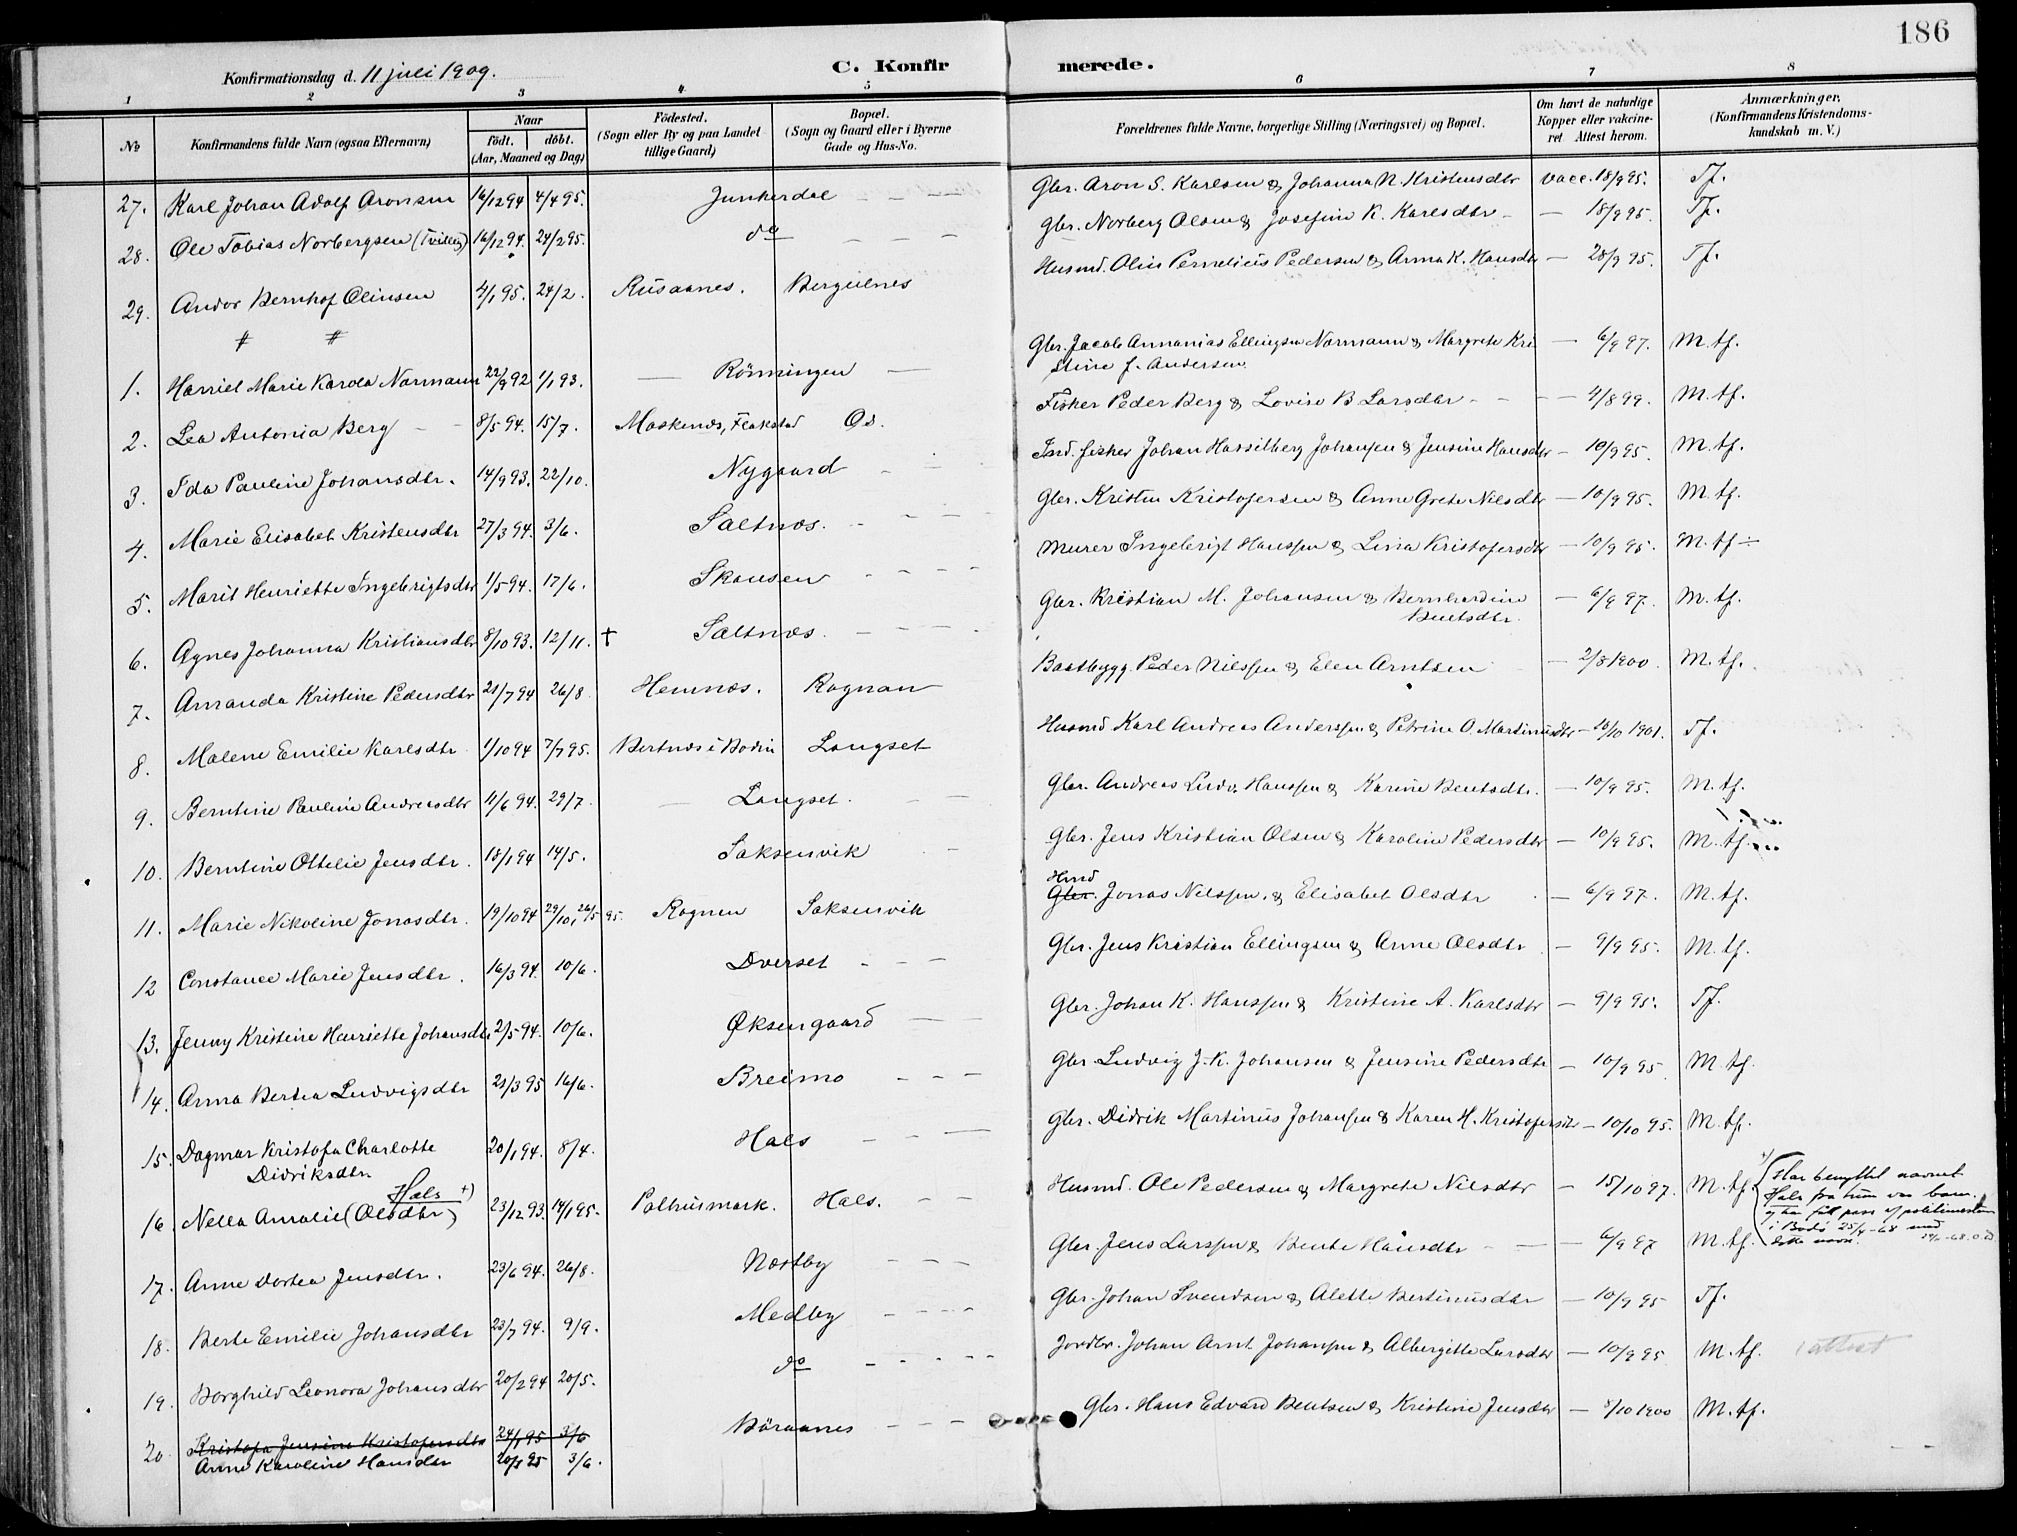 186
Konfirmationsdag d. 11 juli 1909. C. Konfirmerede.
1 2 3 4 5 6 7 8
No
Konfirmandens fulde Navn (ogsaa Efternavn)
Naar
födt. döbt.
(Aar, Maaned og Dag)
Födested.
(Sogn eller By og paa Landet
tillige Gaard)
Bopæl.
(Sogn og Gaard eller i Byerne
Gade og Hus-No.
Forældrenes fulde Navne, borgerlige Stilling (Næringsvei) og Bopæl.
Om havt de naturlige
Kopper eller vakcine-
ret Attest herom.
Anmærkninger,
(Konfirmandens Kristendoms-
kundskab m. V.)
27. Karl Johan Adolf Aronsen 16/12 94 4/4 95. Junkerdal Gbr. Aron S. Karlsen & Johanna N. Kristensdtr vacc. 18/9 95. Tf.
28. Ole Tobias Norbergsen (Tvilling) 16/12 94. 24/2 95. do Gbr. Norberg Olsen & Josefine K. Karlsdtr - 18/9 95. Tf.
29. Andor Bernhof Olinsen 4/1 95. 24/2. Rusaanes. Bergulnes Husmd. Olin Pernelius Pedersen & Anna K. Hansdtr - 28/9 95. Tf.
# #
1. Harriel Marie Karola Normann 22/9 92 1/1 93. Rönningen Gbr. Jacob Annanias Ellingsen Normann & Margrete Kri
stine f. Andersen - 6/9 97. M. tf.
2. Lea Antonia Berg 8/5 94. 15/7. Moskenes, Flakstad Os. Fisker Peder Berg & Lovise B Larsdtr - 4/8 99. M. tf.
3. Ida Pauline Johansdtr. 14/9 93. 22/10. Nygaard Ind. fisker Johan Hasselberg Johansen & Jensine Hansdtr - 10/9 95. M. tf.
4. Marie Elisabet Kristensdtr 27/3 94. 3/6. Saltnes. Gbr. Kristen Kristofersen & Anne Grete Nilsdtr - 10/9 95. M. tf.
5. Marit Henriette Ingebrigtsdtr 1/5 94. 17/6. Skansen Murer Ingebrigt Hanssen & Lina Kristofersdtr - 10/9 95. M. tf ÷
6. Agnes Johanna Kristiansdtr 8/10 93. 12/11. + Saltnes. Gbr. Kristian M. Johansen & Bernhardine
Bentsdtr. - 6/9 97. M. tf.
7. Amanda Kristine Pedersdtr 21/7 94 26/8 Hemnes. Rognan Baatbygg. Peder Nilssen & Elen Arntsen - 2/8 1900. M. tf.
8. Malene Emilie Karlsdtr 1/10 94 7/7 95. Bertnes i Bodin Langset Husmd Karl Andreas Anderssen & Petrine O. Martinusdtr - 16/10 1901. Tf.
9. Berntine Pauline Andreasdtr 11/6 94. 29/7. Langset. Gbr. Andreas Ludv. Hanssen & Karine Bentsdtr. - 10/9 95. M. tf.
10. Berntine Ottelie Jensdtr. 18/1 94 14/5. Saksenvik Gbr. Jens Kristian Olsen & Karoline Pedersdtr - 10/9 95. M. tf.
11. Marie Nikoline Jonasdtr. 19/10 94 29/10, 26/5 95. Rognan Saksenvik Hmd Gbr. Jonas Nilssen. & Elisabet Olsdtr - 6/9 97. M. tf.
12 Constance Marie Jensdtr. 16/3 94. 10/6. Dverset Gbr. Jens Kristian Ellingsen & Anne Olsdtr - 9/9 95. M. tf.
13. Jenny Kristine Henriette Johansdtr 2/5 94. 10/6. Øksengaard Gbr. Johan K. Hanssen & Kristine A. Karlsdtr - 9/9 95. Tf.
14. Anna Bertea Ludvigsdtr 21/3 95 16/6. Breimo Gbr. Ludvig J. K. Johansen & Jensine Pedersdtr - 10/9 95 M. tf.
15. Dagmar Kristofa Charlotte
Didriksdtr. 20/1 94. 8/4. Hals Gbr. Didrik Martinus Johansen & Karen M. Kristofersdtr - 10/10 95. M. tf.
Hals +)
16. Nella Amalie (Olsdtr) 23/12 93. 14/1 95. Polhusmark. Hals. Husmd. Ole Pedersen & Margrete Nilsdtr - 15/10 97. M. tf.
+) Har benyttet navnet
Hals fra hun var barn
og har fått pass af politimesteren
i Bodö 25/4-68 med
dette navn.
17. Anne Dortea Jensdtr. 23/6 94. 26/8. Nestby Gbr. Jens Larssen & Bente Hansdtr - 6/9 97 M. tf.
18. Berte Emilie Johansdtr 23/7 94. 9/9. Medby Gbr. Johan Svendsen & Alette Bertinusdtr - 10/9 95 Tf.
19. Borghild Leonora Johansdtr 20/2 94 20/5. do Jordbr. Johan Arnt Johanssen & Albergitte Larsdtr - 10/9 95 M. tf. 1 attest
20. Kristofa Jensine Kristofersdtr 24/1 95 3/6
Anne Karoline Hansdtr 20/1 95 3/6. Böraanes Gbr. Hans Edvard Bentsen & Kristine Jensdtr - 8/10 1900 M. tf.